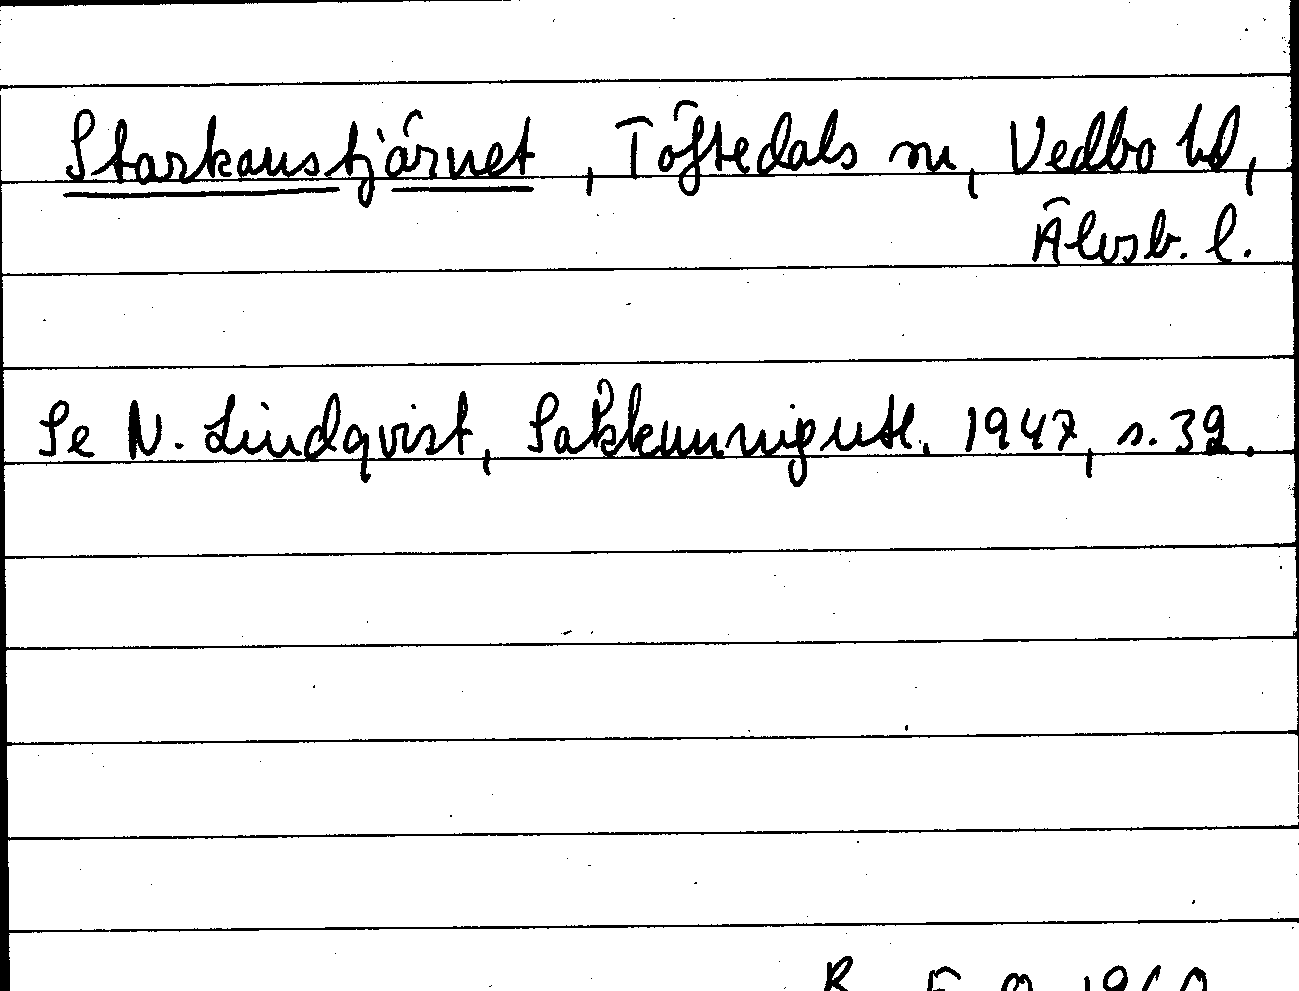 Starkanstjärnet, Töftedals sn, Vedbo hd,
Älvsb. l.
Se N. Lindqvist, Sakkunnigutl. 1947, s. 39.